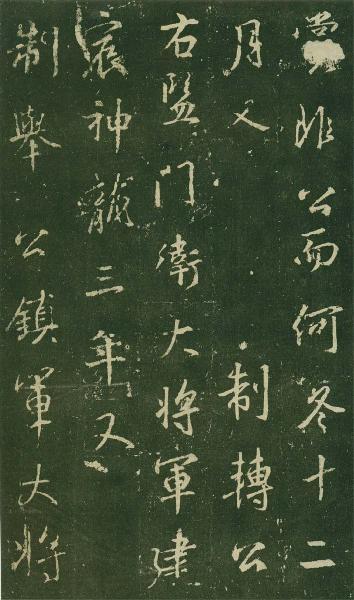 賞非公而何冬十二
月又 制轉公
右監門衛大將軍建
神龍三年又
制舉公鎮軍大將